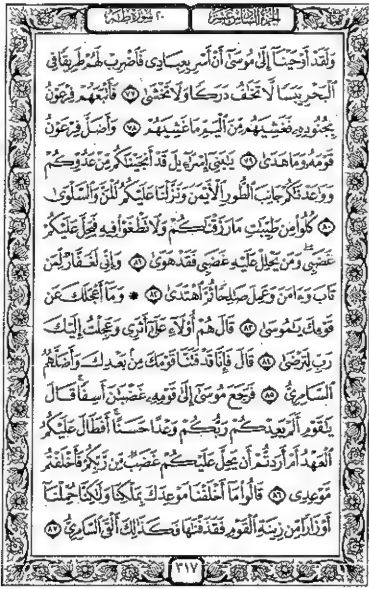 الجزء السادس عشر ٢٠ سورة طه
وَلَقَدْ أَوْحَيْنَآ إِلَىٰ مُوسَىٰٓ أَنْ أَسْرِ بِعِبَادِى فَٱضْرِبْ لَهُمْ طَرِيقًا فِى
ٱلْبَحْرِ يَبَسًا لَّا تَخَٰفُ دَرَكًا وَلَا تَخْشَىٰ ٧٧ فَأَتْبَعَهُمْ فِرْعَوْنُ
بِجُنُودِهِۦ فَغَشِيَهُم مِّنَ ٱلْيَمِّ مَا غَشِيَهُمْ ٧٨ وَأَضَلَّ فِرْعَوْنُ
قَوْمَهُۥ وَمَا هَدَىٰ ٧٩ يَٰبَنِىٓ إِسْرَٰٓءِيلَ قَدْ أَنجَيْنَٰكُم مِّنْ عَدُوِّكُمْ
وَوَٰعَدْنَٰكُمْ جَانِبَ ٱلطُّورِ ٱلْأَيْمَنَ وَنَزَّلْنَا عَلَيْكُمُ ٱلْمَنَّ وَٱلسَّلْوَىٰ
٨٠ كُلُوا۟ مِن طَيِّبَٰتِ مَا رَزَقْنَٰكُمْ وَلَا تَطْغَوْا۟ فِيهِ فَيَحِلَّ عَلَيْكُمْ
غَضَبِى ۖ وَمَن يَحْلِلْ عَلَيْهِ غَضَبِى فَقَدْ هَوَىٰ ٨١ وَإِنِّى لَغَفَّارٌ لِّمَن
تَابَ وَءَامَنَ وَعَمِلَ صَٰلِحًا ثُمَّ ٱهْتَدَىٰ ٨٢ ۞ وَمَآ أَعْجَلَكَ عَن
قَوْمِكَ يَٰمُوسَىٰ ٨٣ قَالَ هُمْ أُو۟لَآءِ عَلَىٰٓ أَثَرِى وَعَجِلْتُ إِلَيْكَ
رَبِّ لِتَرْضَىٰ ٨٤ قَالَ فَإِنَّا قَدْ فَتَنَّا قَوْمَكَ مِنۢ بَعْدِكَ وَأَضَلَّهُمُ
ٱلسَّامِرِىُّ ٨٥ فَرَجَعَ مُوسَىٰٓ إِلَىٰ قَوْمِهِۦ غَضْبَٰنَ أَسِفًا ۚ قَالَ
يَٰقَوْمِ أَلَمْ يَعِدْكُمْ رَبُّكُمْ وَعْدًا حَسَنًا ۚ أَفَطَالَ عَلَيْكُمُ
ٱلْعَهْدُ أَمْ أَرَدتُّمْ أَن يَحِلَّ عَلَيْكُمْ غَضَبٌ مِّن رَّبِّكُمْ فَأَخْلَفْتُم
مَّوْعِدِى ٨٦ قَالُوا۟ مَآ أَخْلَفْنَا مَوْعِدَكَ بِمَلْكِنَا وَلَٰكِنَّا حُمِّلْنَآ
أَوْزَارًا مِّن زِينَةِ ٱلْقَوْمِ فَقَذَفْنَٰهَا فَكَذَٰلِكَ أَلْقَى ٱلسَّامِرِىُّ ٨٧
٣١٧